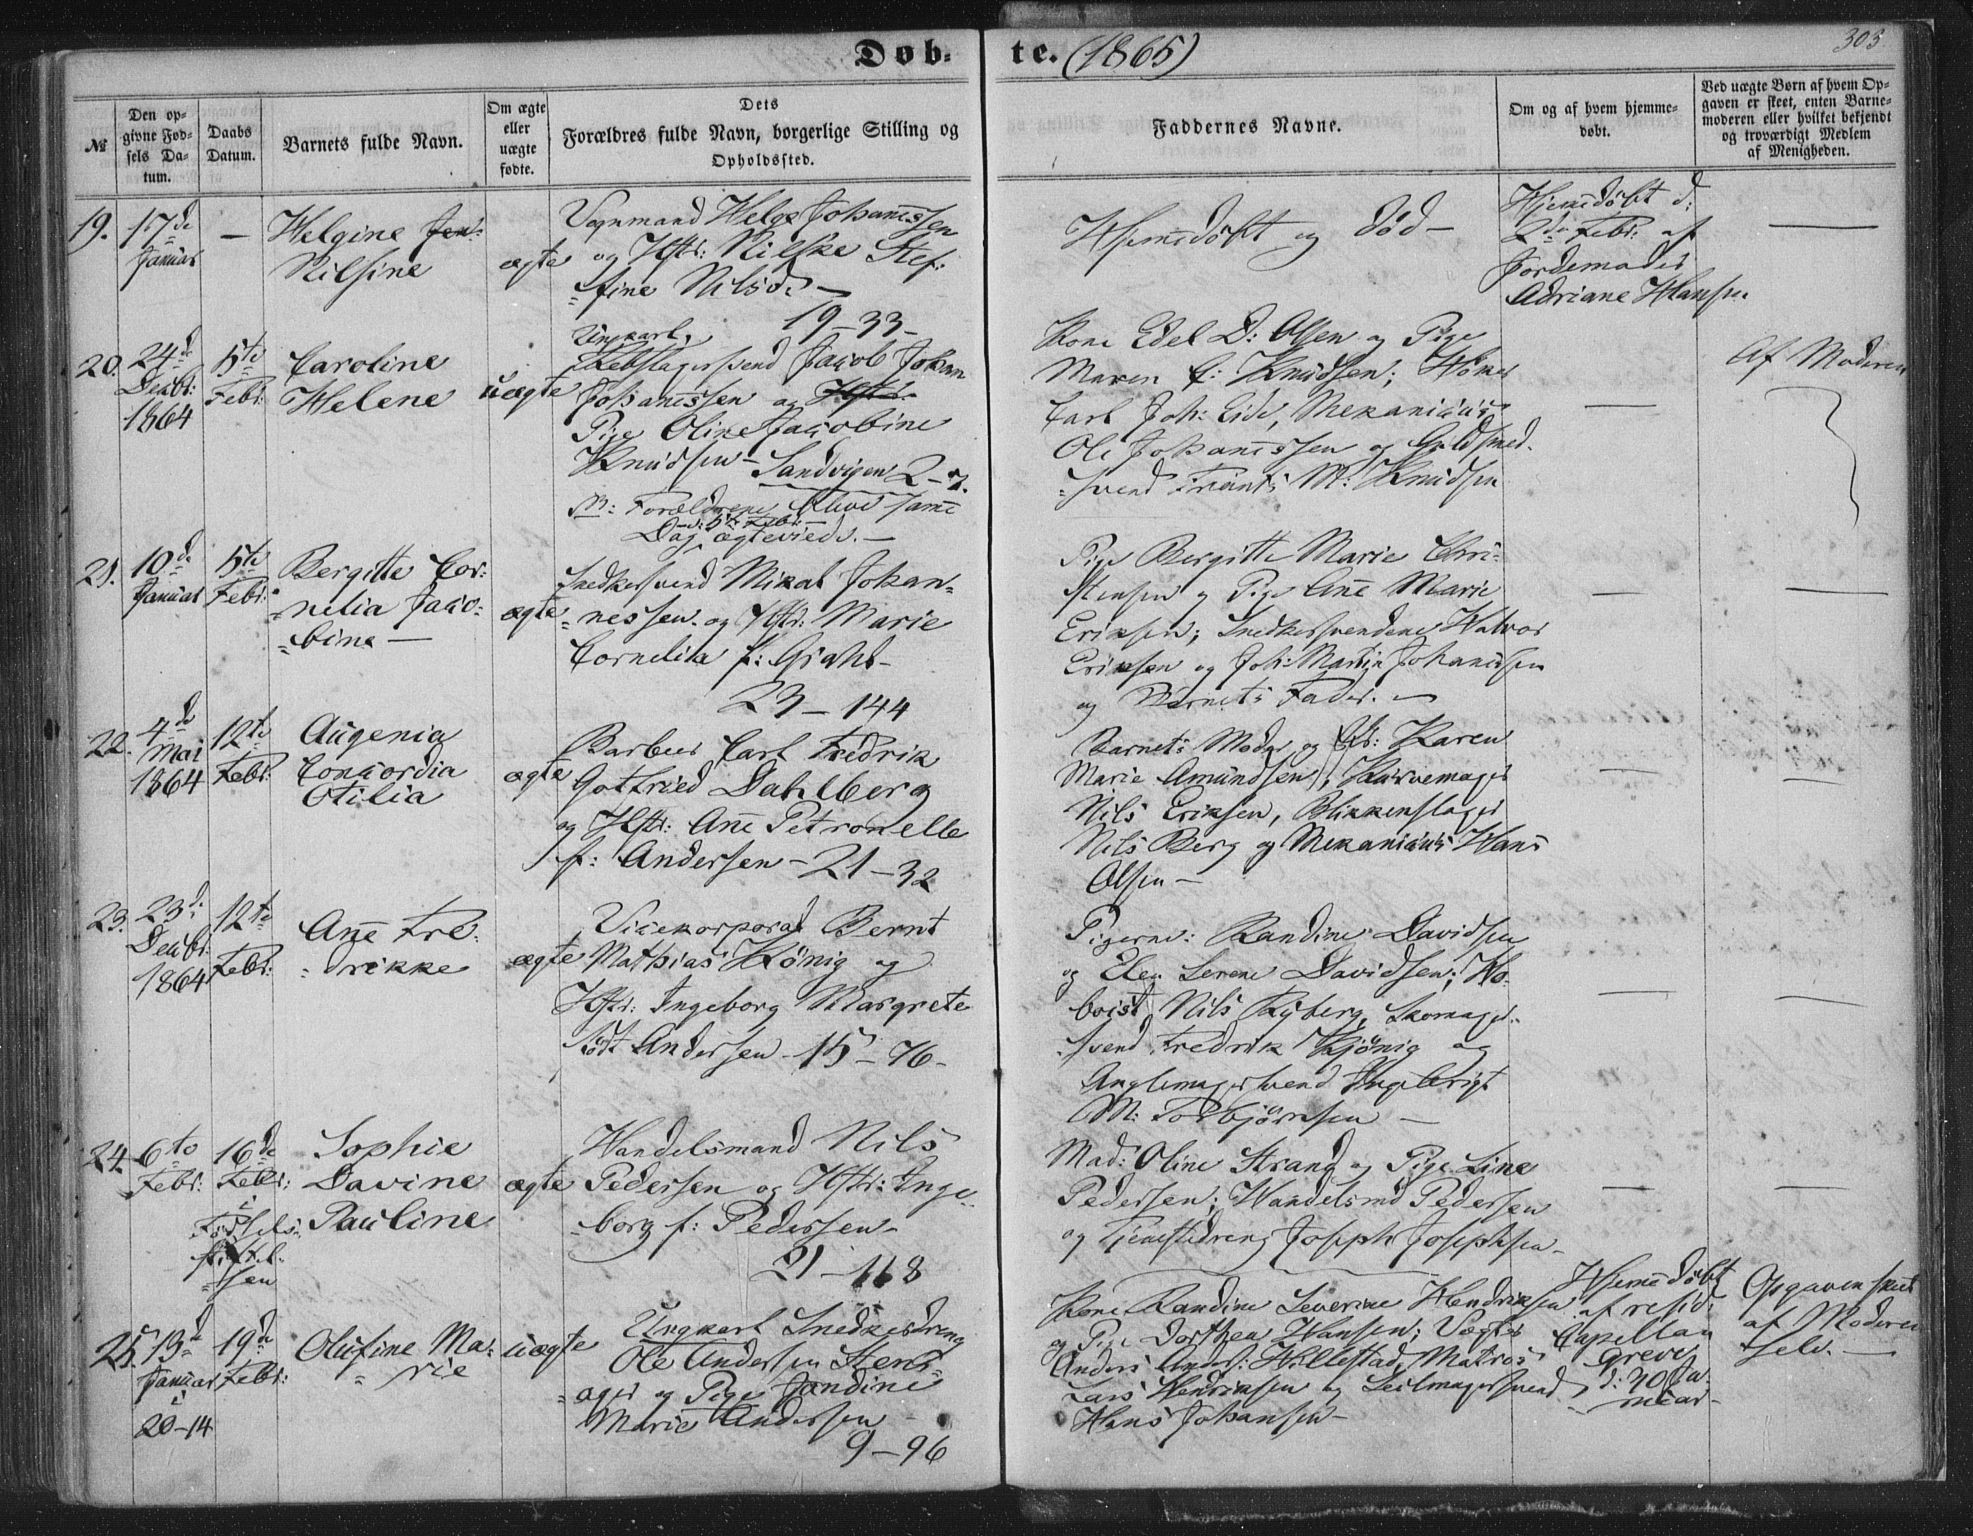 Døb- te. (1865)
303
№
Den op-
givne Fød-
sels Da-
tum.
Daabs
Datum.
Barnets fulde Navn.
Om ægte
eller
uægte
fødte.
Dets
Forældres fulde Navn, borgerlige Stilling og
Opholdssted.
Faddernes Navne.
Om og af hvem hjemme-
døbt.
Ved uægte Børn af hvem Op-
gaven er skeet, enten Barne-
moderen eller hvilket bekjendt
og troværdigt Medlem
af Menigheden.
19.
17de
Januar
—
Helgine Jen-
Nilsine
ægte
Vognmand Helge Johanessen
og Hstr: Nilske Stef:
fine Nilsd. —
19–33–
Hjemedøbt og død —
Hjemedøbt d:
2de Febr: af
Jordemoder
Adriane Hansen
—
20.
24de
Decbr:
1864
5te
Febr:
Caroline
Helene
uægte
Ungkarl,
Rebslagersvend Jacob Johan
Johanessen og Hstr:
Pige Oline Jacobine
Knudsen – Sandvigen 2–7.
NB: Forældrene bleve same
Dag d: 5te Febr: ægteviede. —
Kone Edel D: Olsen og Pige
Maren C: Knudsen; Høker
Carl Joh: Eide, Mekanicus
Ole Johanessen og Guldsmed-
svend Frants M: Knudsen
—
Af Moderen
21.
10de
Januar
5te
Febr:
Bergitte Cor-
nelia Jaco-
bine —
ægte
Snedkersvend Mikal Johan-
nessen og Hstr: Marie
Cornelia f: Grahl –
23–144
Pige Bergitte Marie Chri-
stensen og Pige Ane Marie
Eriksen; Snedkersvendene Halvor
Eriksen og Joh: Martin Johanessen
og Barnets Fader. —
—
—
22.
4de
Mai
1864
12te
Febr:
Augenia
Concordia
Otilia
ægte
Barber Carl Fredrik
Gotfried Dahlberg
og Hstr: Ane Petronelle
f: Andersen – 21–32
Barnets Moder og Karen
Marie Amundsen, Kurvemager
Nils Eriksen, Blikkenslager
Nils Berg og Mekanicus Hans
Olsen —
—
—
23.
23de
Decbr:
1864
12te
Febr:
Ane Fre-
drikke
ægte
Vicekorporal Bernt
Mathias König og
Hstr: Ingeborg Margrete
født Andersen – 15–76–
Pigerne: Randine Davidsen
og Elen Serene Davidsen; Ho-
boist Nils Ryberg, Skomager-
svend Fredrik Kjönig og
Anglemagersvend Ingebrigt
M: Torbjørnsen —
—
—
24.
6te
Febr:
16de
Febr:
i
Fødsels-
stiftel-
sen
Sophie
Davine
Pauline
ægte
Handelsmand Nils
Pedersen og Hstr: Inge-
borg f: Pedersen –
21–118
Mad: Oline Strand og Pige Line
Pedersen; Handelsmd Pedersen
og Tjenestedreng Joseph Josephsen –
—
—
25.
13de
Januar
i
20–14
19de
Febr:
Olufine Ma-
rie
uægte
Ungkarl Snedkerdreng
Ole Andersen Stens-
ager og Pige Jandine
Marie Andersen –
9–96
Kone Randine Severine Hendriksen
og Pige Dorthea Hansen; Vægter
Anders Anders: Hillestad, Matros
Lars Hendriksen og Seilmagersvend
Hans Johansen –
Hjemedøbt
af resid:
Capellan
Greve
d: 20 Ja-
nuar –
Opgaven skeet
af Moderen
selv. —